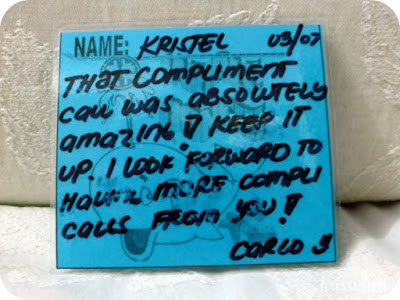 NAME: KRISTEL 09/07
THAT COMPLIMENT
CALL WAS ABSOLUTELY
AMAZING! KEEP IT
UP. I LOOK FORWARD TO
HAVING MORE COMPLI
CALLS FROM YOU!
CARLO